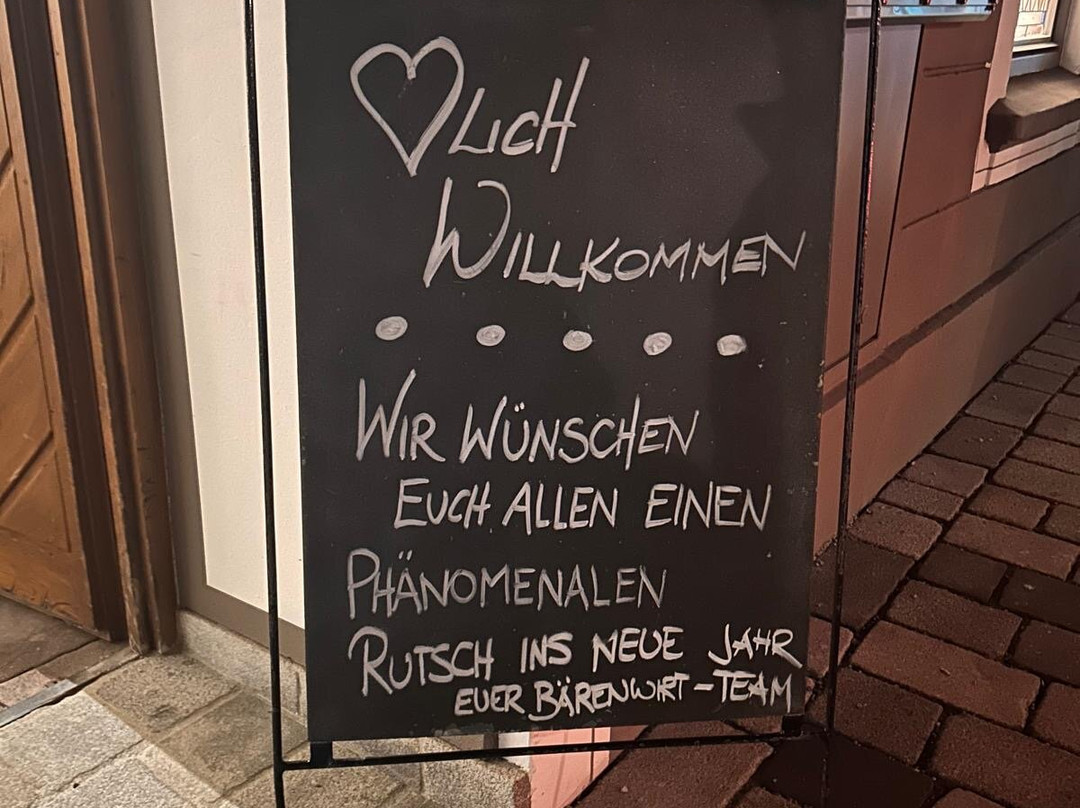 ♡LICH
WILLKOMMEN
WIR WÜNSCHEN
EUCH ALLEN EINEN
PHÄNOMENALEN
RUTSCH INS NEUE JAHR
EUER BÄRENWIRT-TEAM